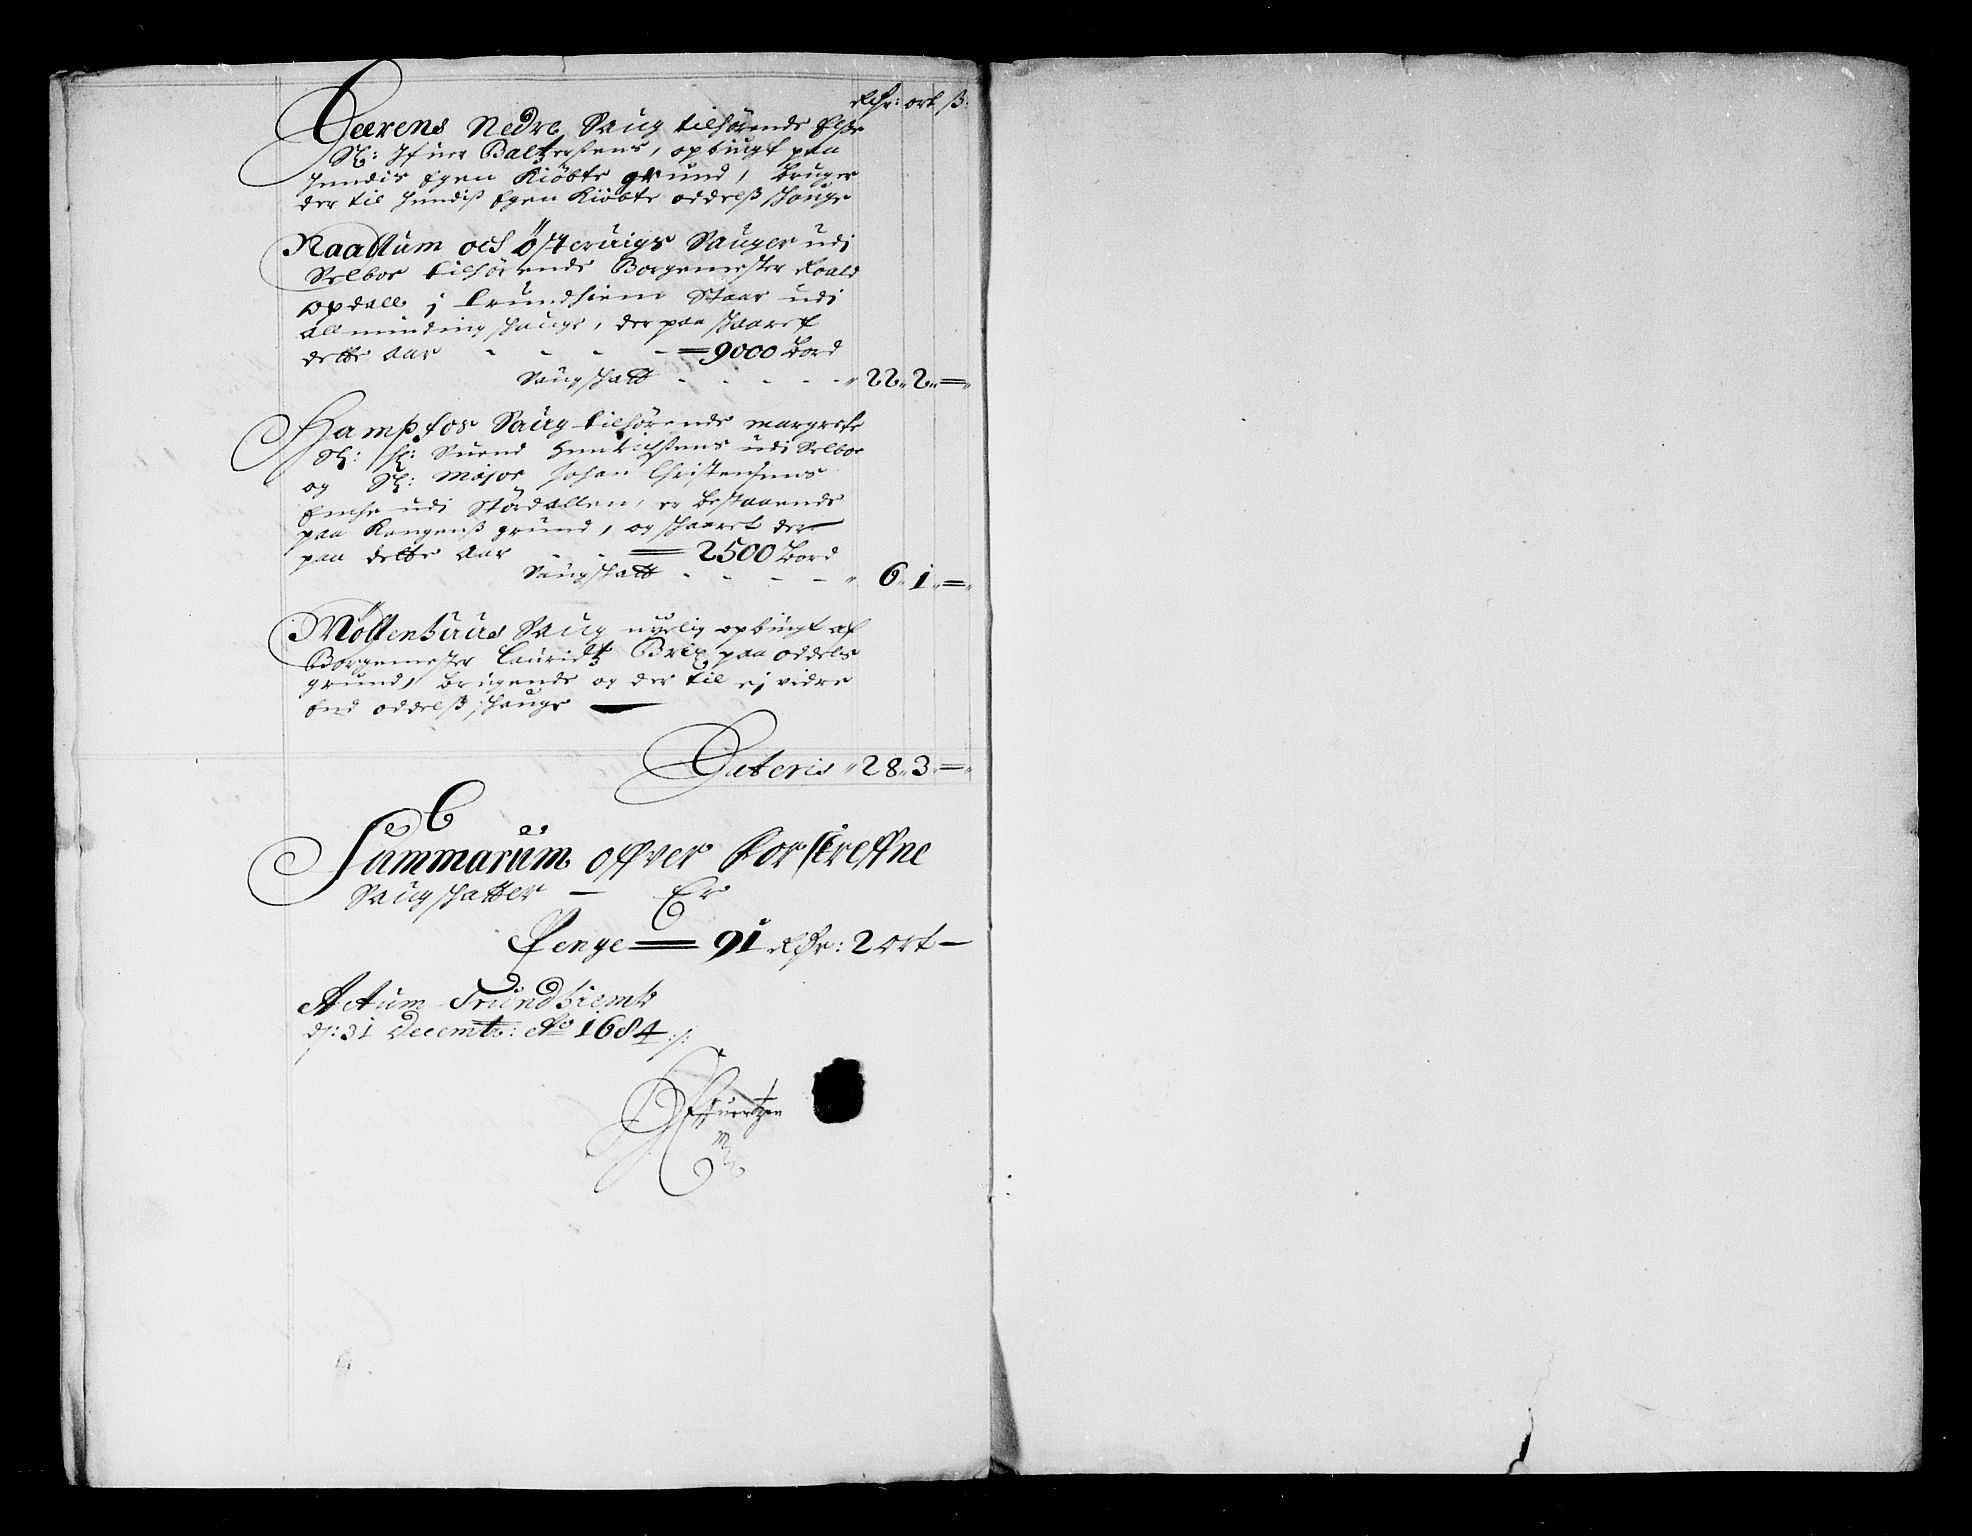 Rdr: ort ß:
Leerens Nedre Saug tilhörende Else
Sl: Ifuer Baltzersens, opbügt paa
hendis Egen Kiöbte grund, bruger
der til hendiß Egen Kiöbte oddelß skouge
Raaddum och Österuigs Sauger udi
Selboe tilhörende Borgemester Roald
Opdall j Trundhiem Staar udi
Allminding skouge, der paa skaaret
dette Aar - - - - = 9000 Bord
Saugskatt - - - - - " 22 " 2 " = "
Kampfos Saug tilhörende Margrete
Sl: Suend Henrichsens udi Selboe
og Sl: Major Johan Christensens
Encke udi Stördallen, er bestaaende
paa Kongenß grund, og skaaret der
paa dette Aar - - = 2500 Bord
Saugskatt - - - - " 6 " 1 " = "
Möllenhuus Saug nyelig opbügt af
Borgemester Lauridtz Brix paa oddels
grund, brugende og der til ej vidre
End oddelß skouge —
Lateris " 28 " 3 " = "
Summarum offver forskreffne
Saugskatter — Er
Penge = 91 Rdr: 2 ort —
Actum Trundhiemb
d: 31 Decemb: Ao 1684 ./.